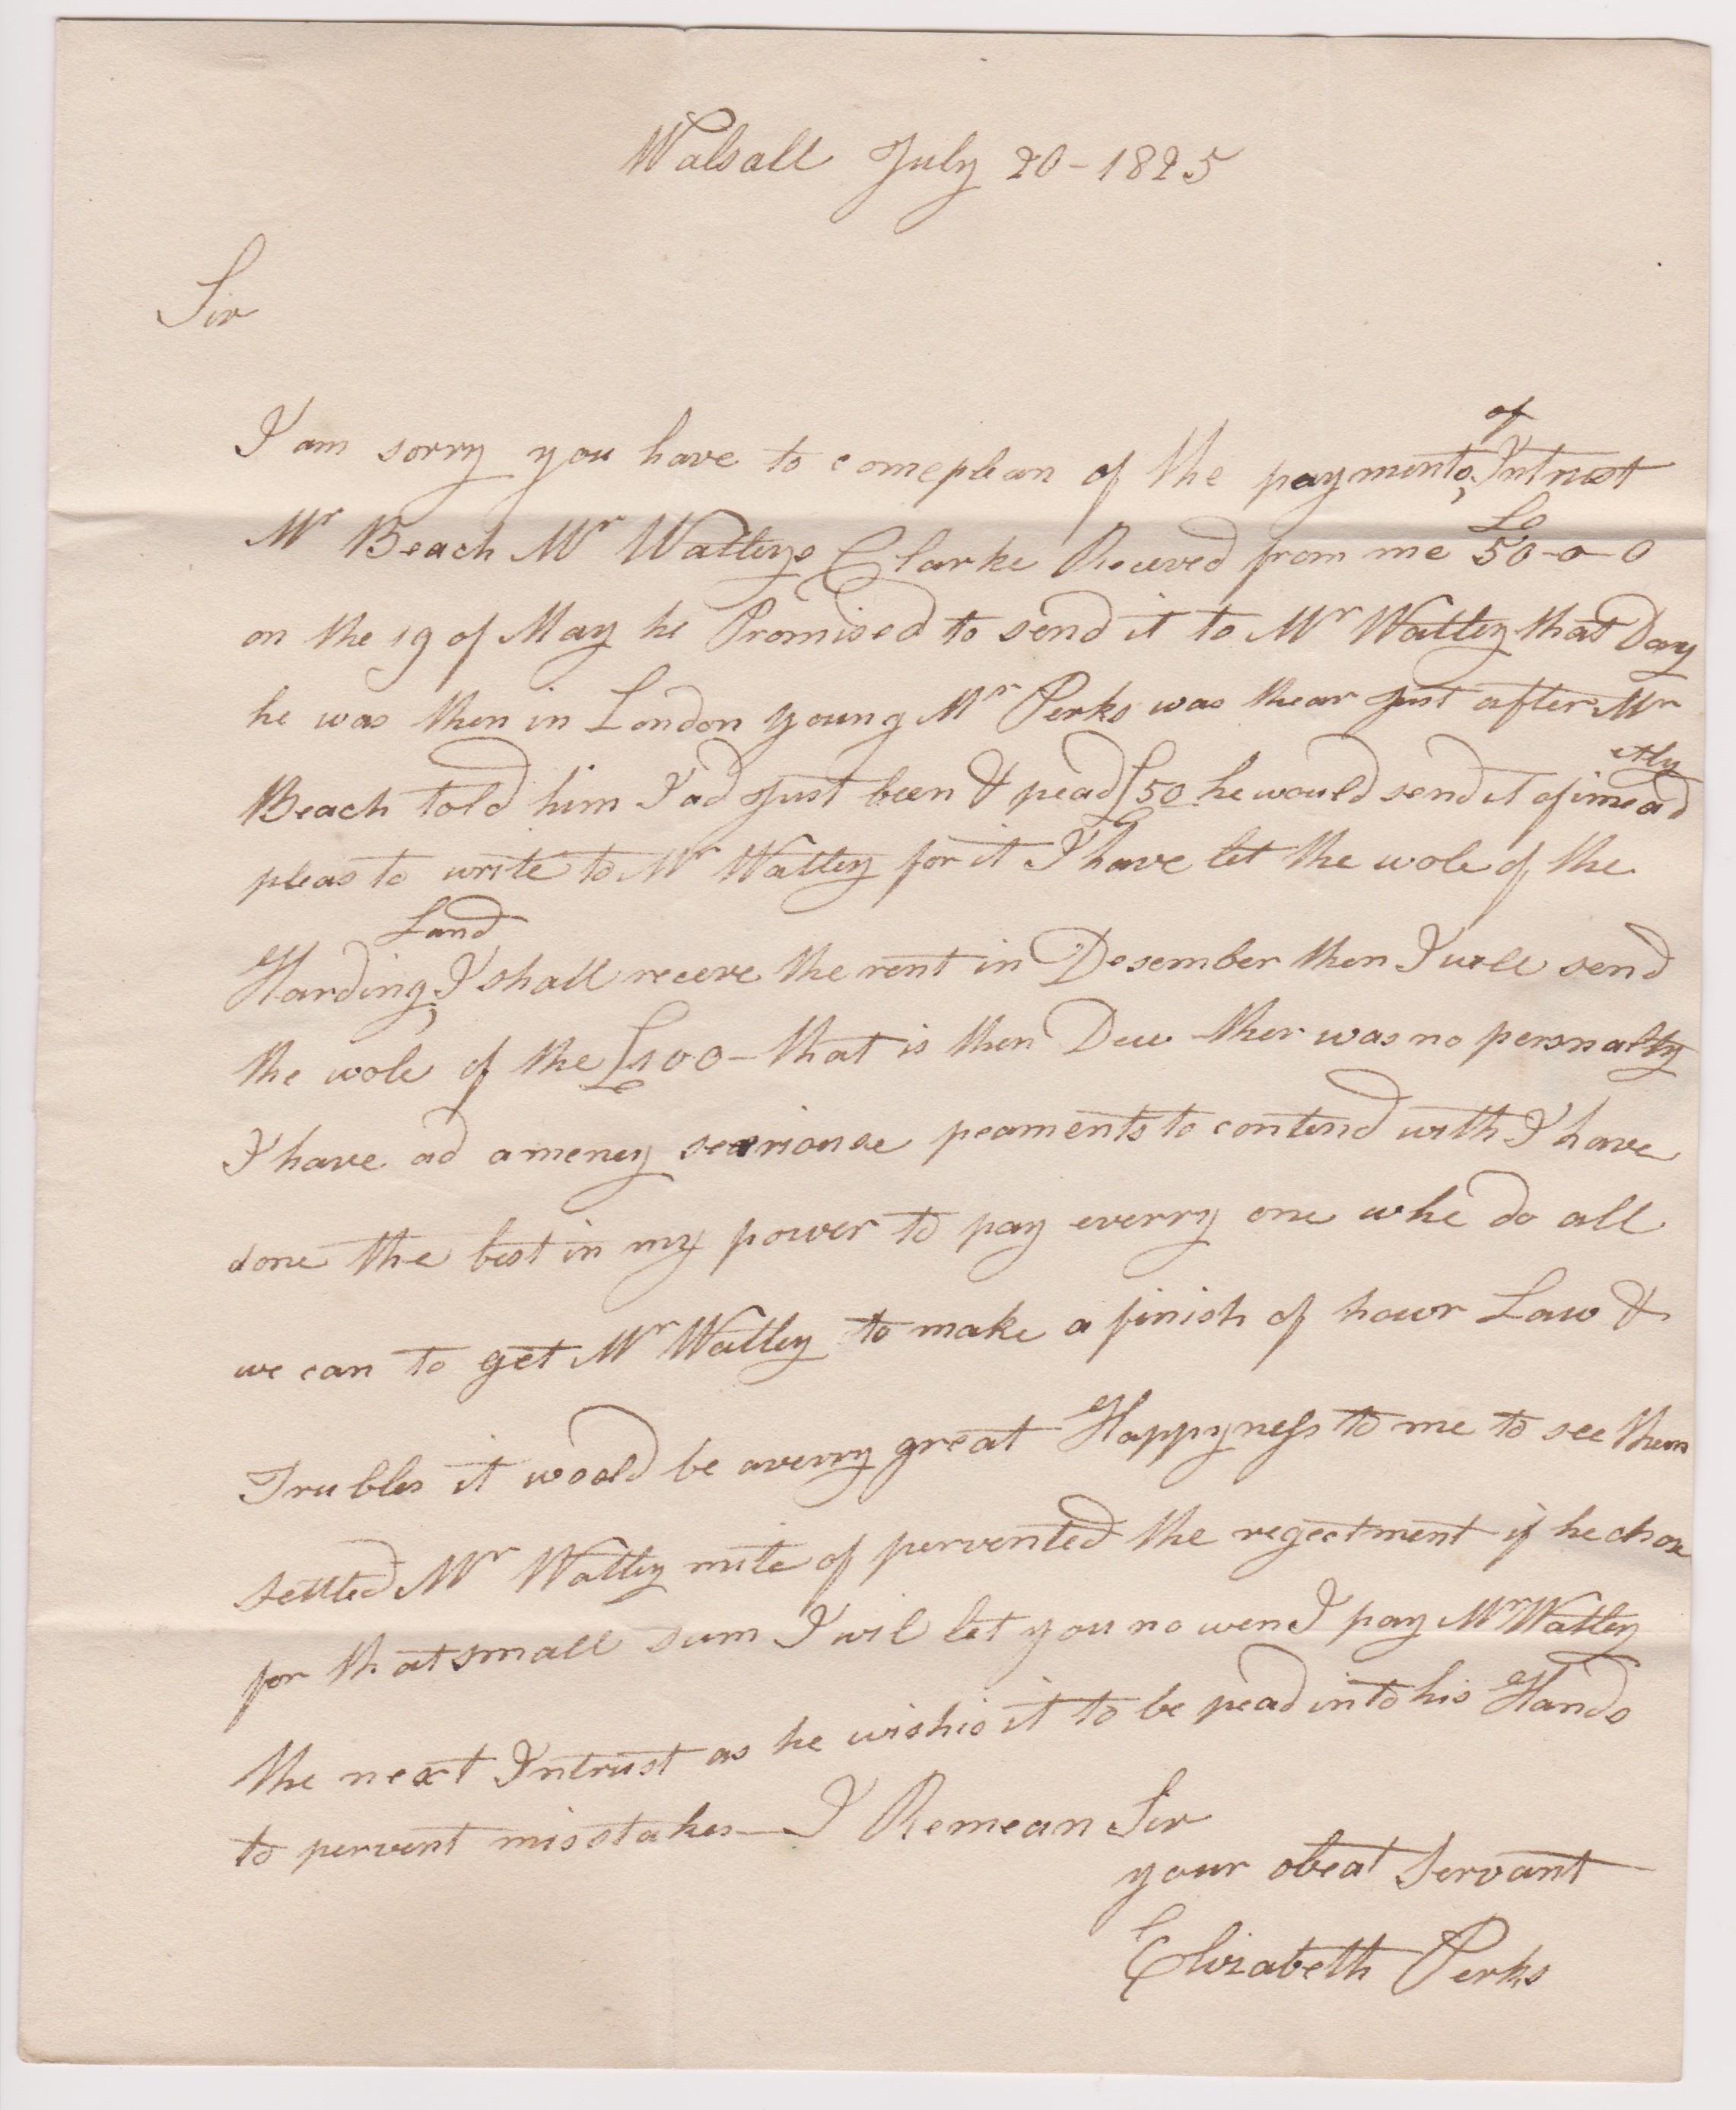 Walsall July 20 - 1825
Sir
I am sorry you have to comeplean of the payments, of Intrust
Mr Beach Mr Watleys Clarke Receved from me £50-0-0
on the 19 of May he Promised to send it to Mr Watley that Day
he was then in London young Mr Perks was thear Just after Mr
Beach told him I ad Just been & pead £50 he would send it of imeadetly
pleas to write to Mr Watley for it I have let the wole of the
Harding, Land I shall receve the rent in Desember then I will send
the wole of the £100 - that is then Due ther was no persnalty
I have ad a meney seariouse peaments to contend with I have
done the best in my power to pay everry one whe do all
we can to get Mr Watley to make a finish of howr Law &
Trubles it woold be a verry great Happyness to me to see them
settled Mr Watley mite of pervented the regectment if he chose
for that small sum I wil let you no wen I pay Mr Watley
the next Intrust as he wishis it to be pead into his Hands
to pervent misstakes - I Remean Sir
your obeat Servant
Elizabeth Perks